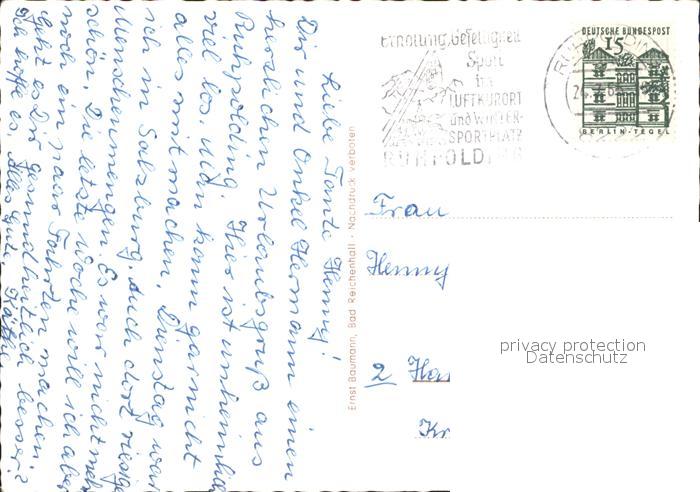 Liebe Tante Henny!
Dir und Onkel Hermann einen
herzlichen Urlaubsgruß aus
Ruhpolding. Hier ist unheimlich
viel los. Man kann garnicht
alles mitmachen. Dienstag war
ich in Salzburg. Auch dort riesige
Menschenmengen. Es war nicht mehr
schön. Die letzte Woche will ich aber
noch ein paar Fahrten machen.
Geht es Dir gesundheitlich besser?
Ich hoffe es. Alles Gute
Ernst Baumann, Bad Reichenhall - Nachdruck verboten
Erholung, Geselligkeit
Sport
im
LUFTKURORT
und WINTER-
SPORTPLATZ
RUHPOLDING
DEUTSCHE BUNDESPOST
15
BERLIN-TEGEL
Frau
Henny
2 Ha
Kr
privacy protection
Datenschutz